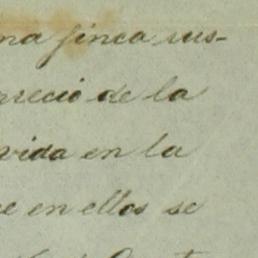 na finca rus-
precio de la
vida en la
e en ellos se